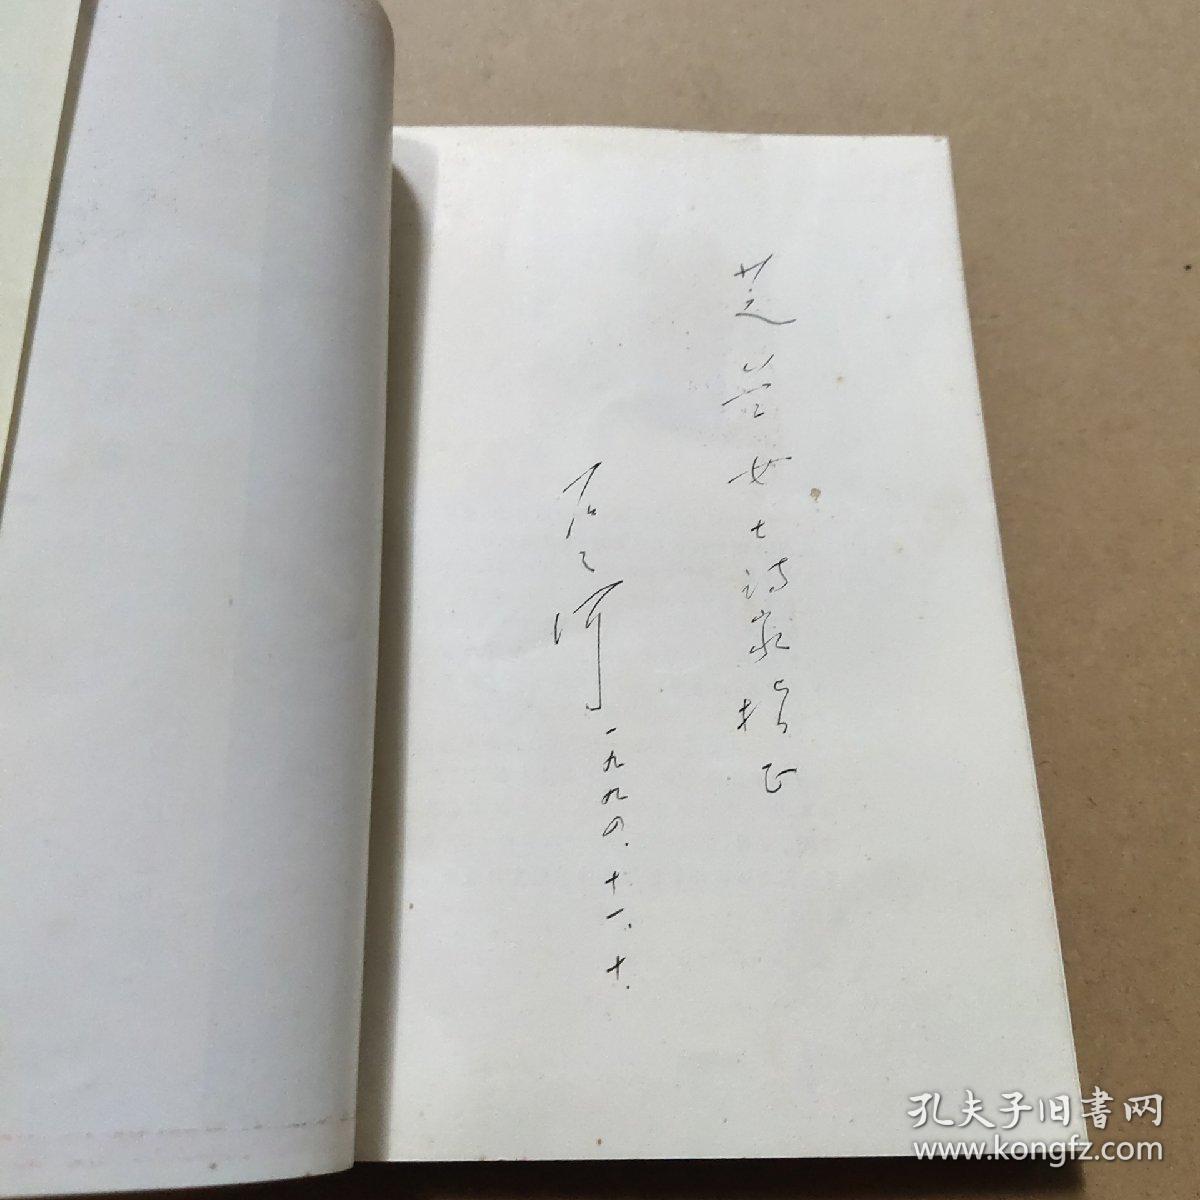 芝兰女士诗家指正
石之河
一九九四.十一.十.
孔夫子旧書网
www.kongfz.com